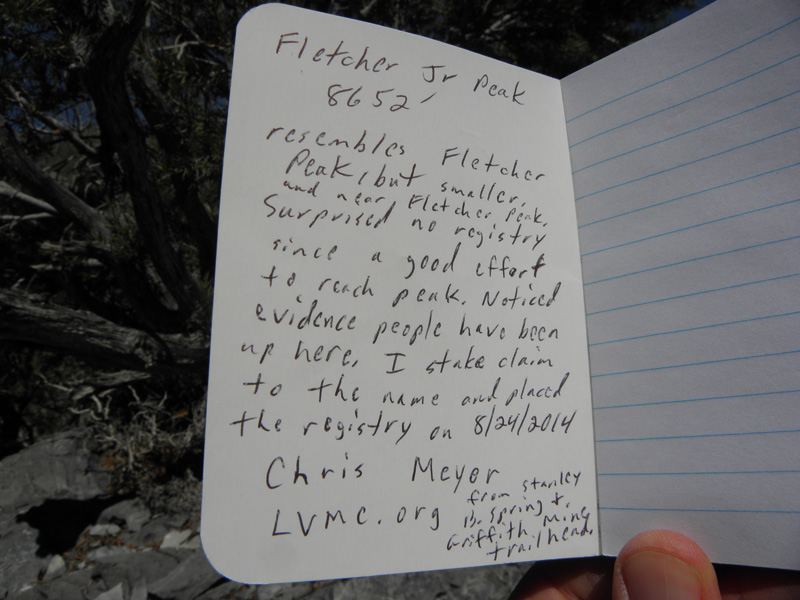 Fletcher Jr Peak
8652'
resembles Fletcher
Peak, but smaller,
and near Fletcher Peak.
Surprised no registry
since a good effort
to reach peak. Noticed
evidence people have been
up here. I stake claim
to the name and placed
the registry on 8/24/2014
Chris Meyer
LVMC.org
from stanley
B. spring t.
Griffith Mine
trailhead.